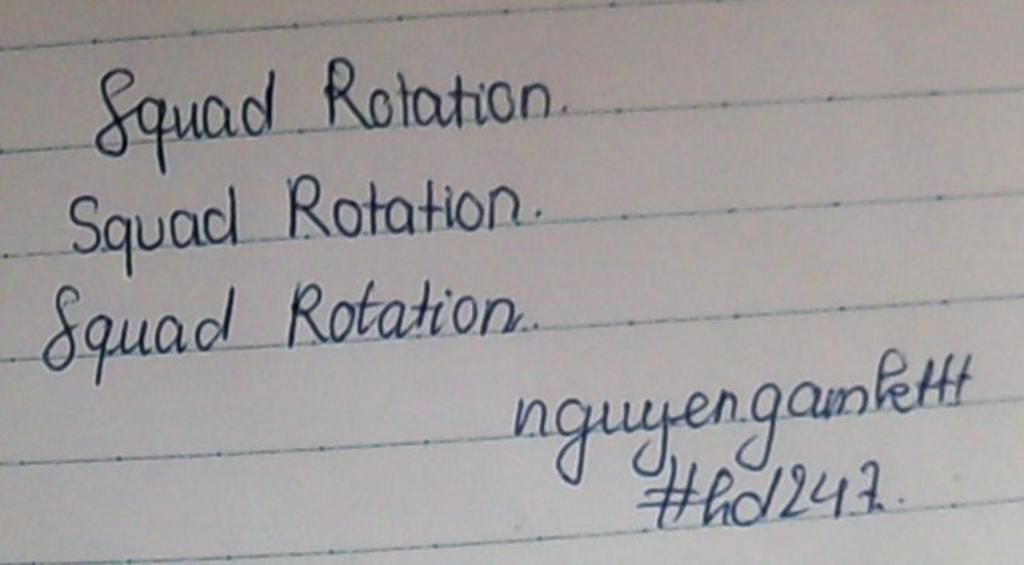 Squad Rotation.
Squad Rotation.
Squad Rotation.
#hd247.